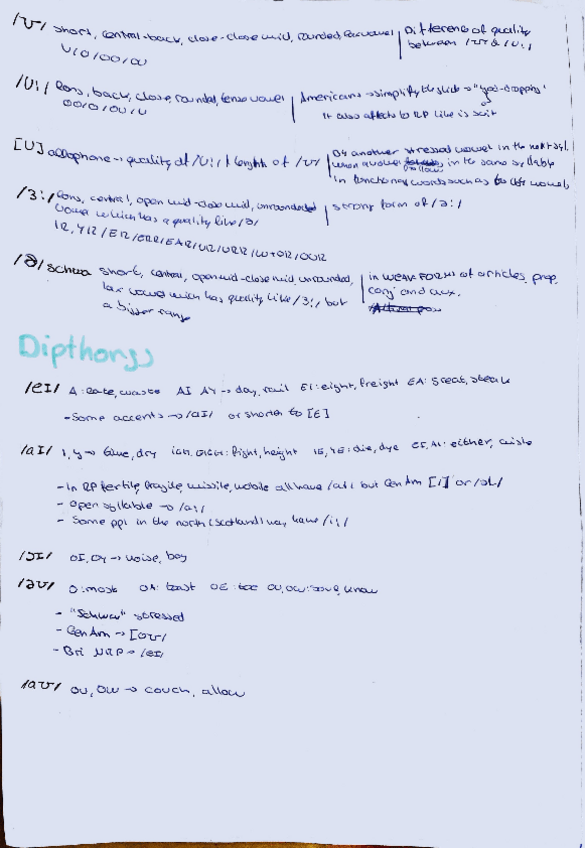 /ʊ/ short, central-back, close-close mid, rounded, lax vowel | Difference of quality
U/O/OO/OU between /ʊ/ & /u:/
/U:/ Long, back, close, rounded, tense vowel | Americans → simplify the glide → "yod-dropping"
OO/O/OU/U It also affects to RP like is suit
[U] allophone → quality of /U:/ & length of /ʊ/ | Of another stressed vowel in the next syl.
when another follow in the same syllable
in functional words such as to
/3:/ Long, central, open mid-close mid, unrounded | strong form of /ə:/
vowel which has a quality like /ə/
IR, YR/ER/ERR/EAR/UR/URR/W+OR/OUR
/ə/ schwa short, central, open mid-close mid, unrounded, | in WEAK FORMS of articles, prep.
lax vowel which has quality like /3:/, but conj and aux.
a bigger range
Dipthongs
/eI/ A: late, waste AI AY → day, rail EI: eight, freight EA: great, steak
- Some accents → /aI/ or shorten to [E]
/aI/ I, y → time, dry IGH, EIGH: fight, height IE, YE: die, dye EI, AI: either, aisle
- In RP fertile, fragile, missile, mobile all have /aI/ but Gen Am [I] or /əL/
- Open syllable → /a:/
- Some ppl in the north (Scotland) may have /i:/
/ɔI/ OI, OY → noise, boy
/əʊ/ O: most OA: toast OE: toe OU, OW: soul, know
- "Schwa" stressed
- Gen Am → [oʊ]
- Bri NRP → /eI
/aʊ/ OU, OW → couch, allow